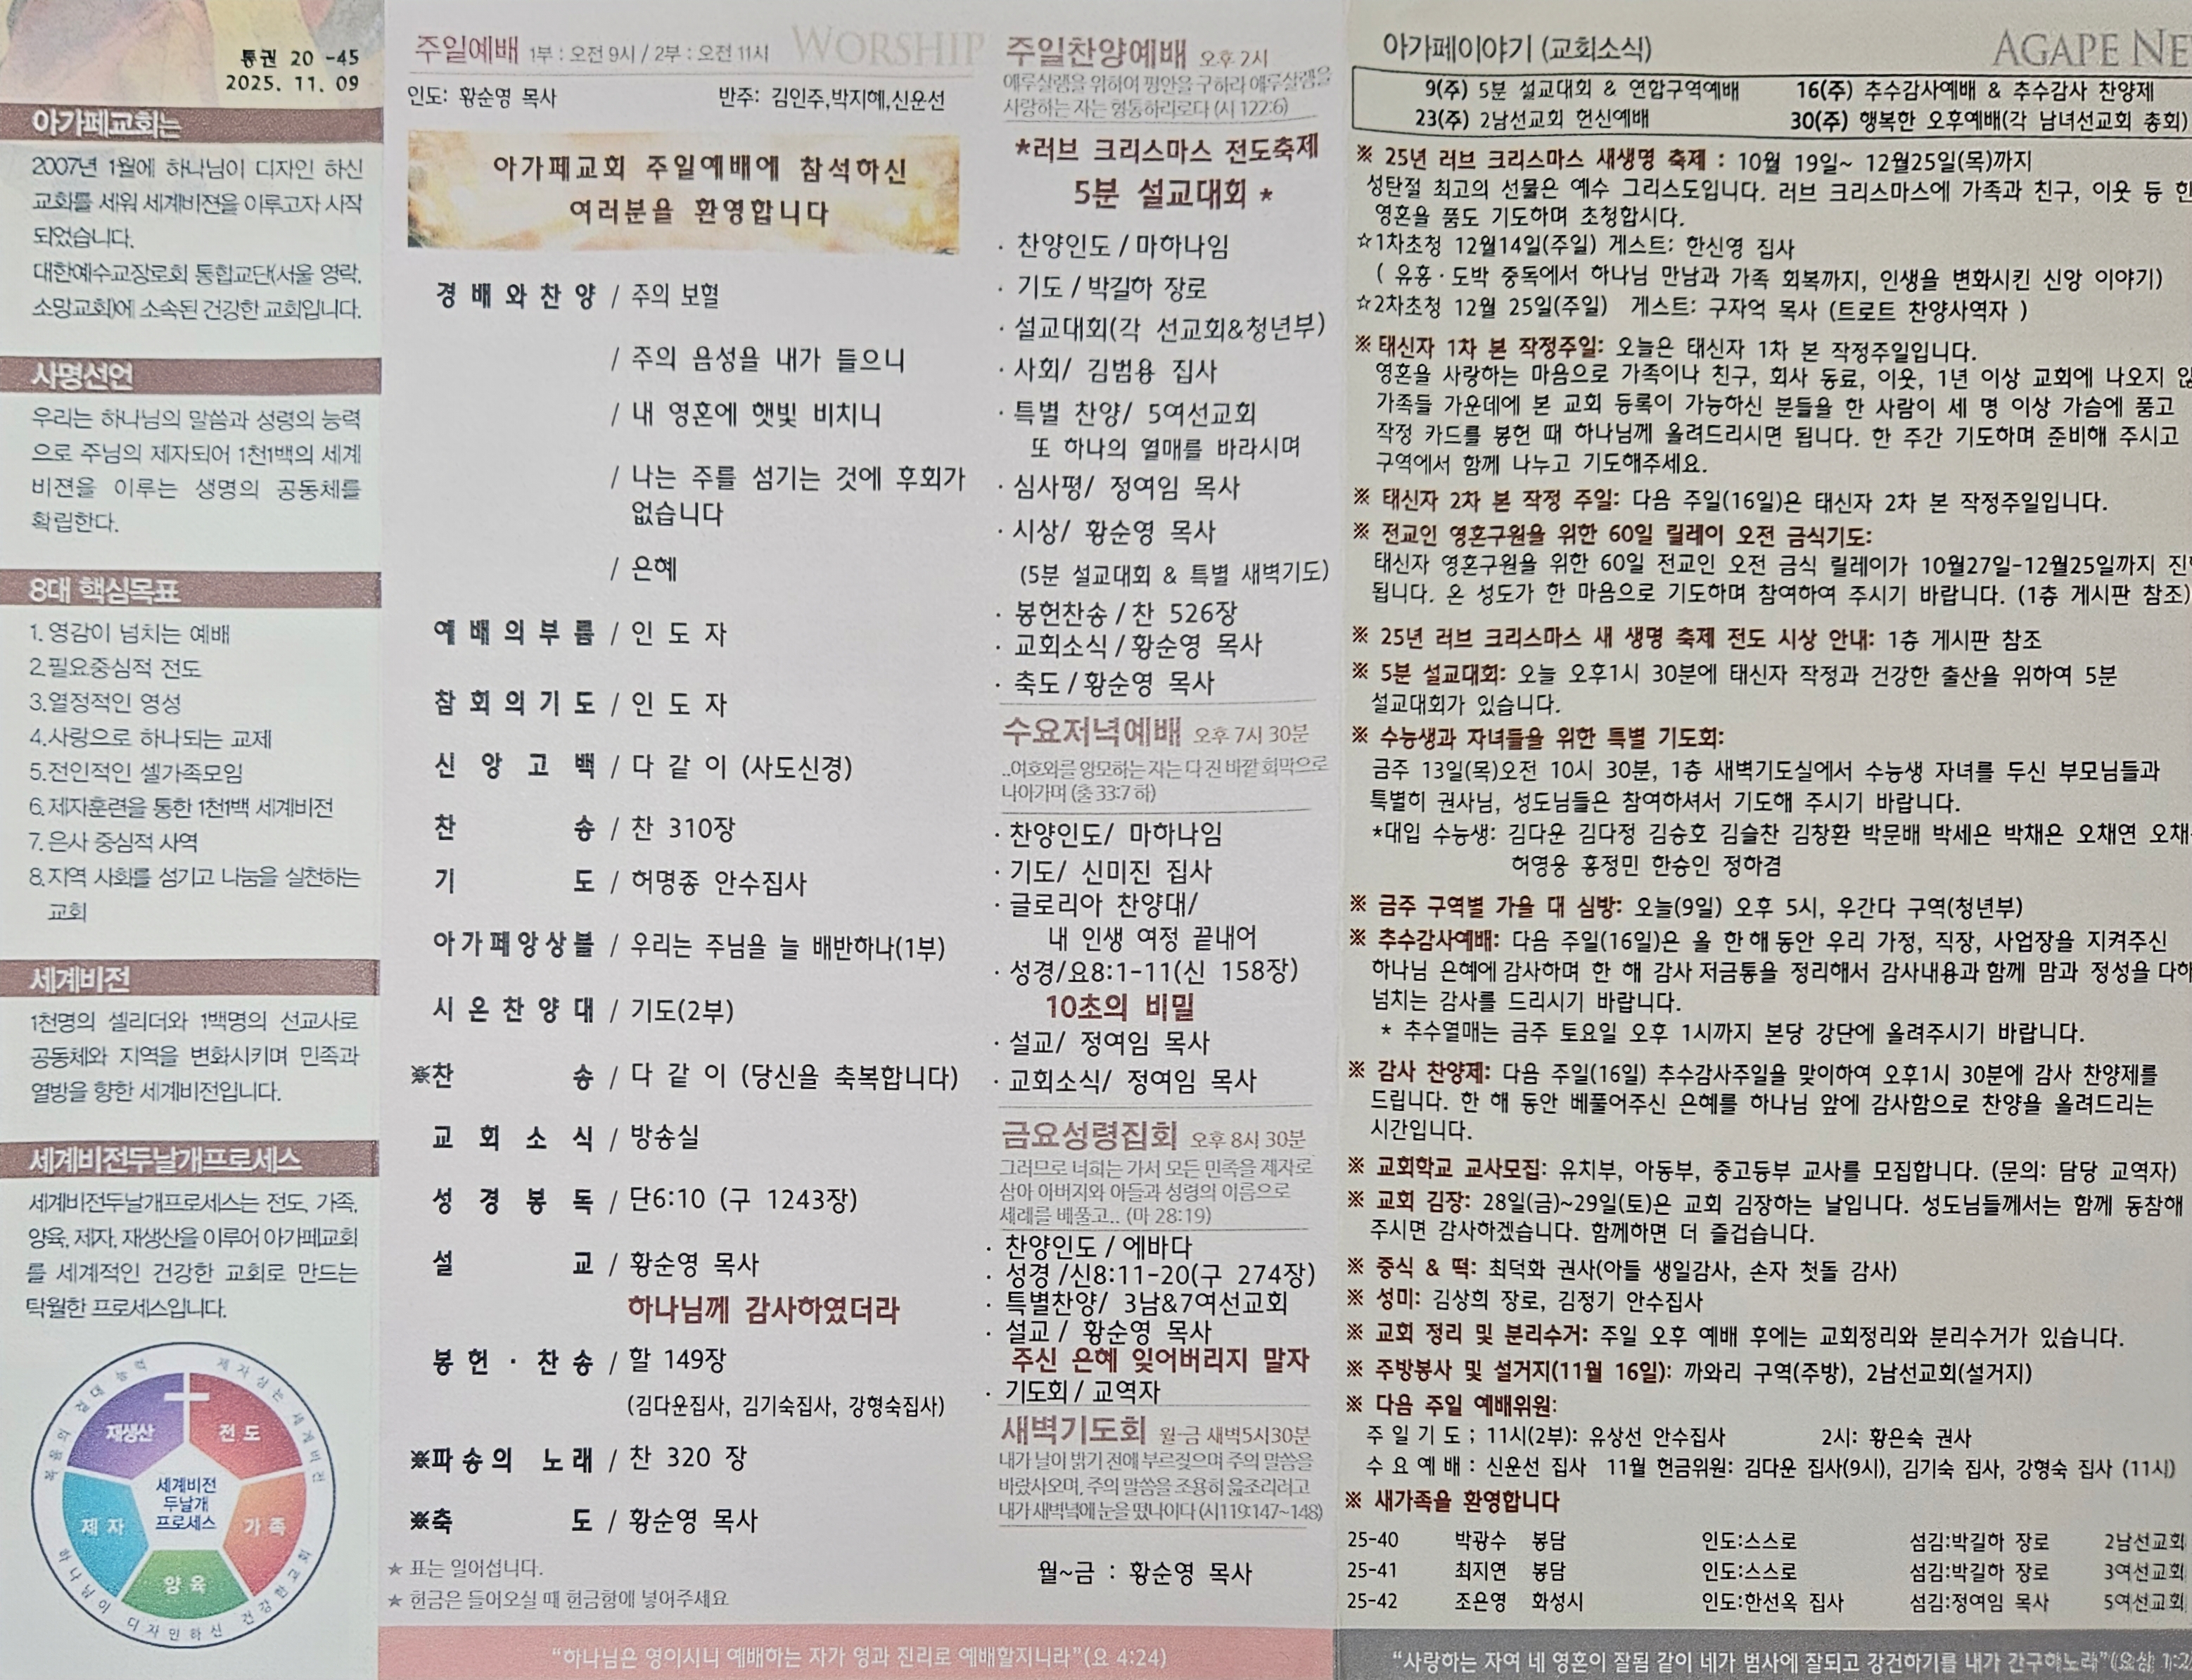 통권 20 -45
2025. 11. 09
아가페교회는
2007년 1월에 하나님이 디자인 하신
교회를 세워 세계비젼을 이루고자 시작
되었습니다.
대한예수교장로회 통합교단(서울 영락,
소망교회)에 소속된 건강한 교회입니다.
사명선언
우리는 하나님의 말씀과 성령의 능력
으로 주님의 제자되어 1천1백의 세계
비젼을 이루는 생명의 공동체를
확립한다.
8대 핵심목표
1. 영감이 넘치는 예배
2.필요중심적 전도
3.열정적인 영성
4.사랑으로 하나되는 교제
5.전인적인 셀가족모임
6.제자훈련을 통한 1천1백 세계비전
7. 은사 중심적 사역
8.지역 사회를 섬기고 나눔을 실천하는
교회
세계비전
1천명의 셀리더와 1백명의 선교사로
공동체와 지역을 변화시키며 민족과
열방을 향한 세계비전입니다.
세계비전두날개프로세스
세계비전두날개프로세스는 전도, 가족,
양육, 제자, 재생산을 이루어 아가페교회
를 세계적인 건강한 교회로 만드는
탁월한 프로세스입니다.
제자삼는 세계비전
하나님이 디자인하신 건강한교회
복음의 절대능력
재생산
전도
제자
가족
양육
세계비전
두날개
프로세스
주일예배 1부 : 오전 9시 / 2부 : 오전 11시 WORSHIP
인도: 황순영 목사 반주: 김인주,박지혜,신운선
아가페교회 주일예배에 참석하신
여러분을 환영합니다
경배와찬양 / 주의 보혈
/ 주의 음성을 내가 들으니
/ 내 영혼에 햇빛 비치니
/ 나는 주를 섬기는 것에 후회가
없습니다
/ 은혜
예배의부름 / 인 도 자
참회의기도 / 인 도 자
신앙고백 / 다 같 이 (사도신경)
찬 송 / 찬 310장
기 도 / 허명종 안수집사
아가페앙상블 / 우리는 주님을 늘 배반하나(1부)
시온찬양대 / 기도(2부)
※찬 송 / 다 같 이 (당신을 축복합니다)
교회소식 / 방송실
성경봉독 / 단6:10 (구 1243장)
설 교 / 황순영 목사
하나님께 감사하였더라
봉헌·찬송 / 할 149장
(김다운집사, 김기숙집사, 강형숙집사)
※파송의 노래 / 찬 320 장
※축 도 / 황순영 목사
★ 표는 일어섭니다.
★ 헌금은 들어오실 때 헌금함에 넣어주세요
“하나님은 영이시니 예배하는 자가 영과 진리로 예배할지니라”(요 4:24)
주일찬양예배 오후 2시
예루살렘을 위하여 평안을 구하라 예루살렘을
사랑하는 자는 형통하리로다 (시 122:6)
*러브 크리스마스 전도축제
5분 설교대회 *
· 찬양인도 / 마하나임
· 기도 / 박길하 장로
· 설교대회(각 선교회&청년부)
· 사회/ 김범용 집사
· 특별 찬양/ 5여선교회
또 하나의 열매를 바라시며
· 심사평/ 정여임 목사
· 시상/ 황순영 목사
(5분 설교대회 & 특별 새벽기도)
· 봉헌찬송 / 찬 526장
· 교회소식 / 황순영 목사
· 축도 / 황순영 목사
수요저녁예배 오후 7시 30분
..여호와를 앙모하는 자는 다 진 바깥 회막으로
나아가며 (출 33:7 하)
· 찬양인도/ 마하나임
· 기도/ 신미진 집사
· 글로리아 찬양대/
내 인생 여정 끝내어
· 성경/요8:1-11(신 158장)
10초의 비밀
· 설교/ 정여임 목사
· 교회소식/ 정여임 목사
금요성령집회 오후 8시 30분
그러므로 너희는 가서 모든 민족을 제자로
삼아 아버지와 아들과 성령의 이름으로
세례를 베풀고.. (마 28:19)
· 찬양인도 / 에바다
· 성경 /신8:11-20(구 274장)
· 특별찬양/ 3남&7여선교회
· 설교 / 황순영 목사
주신 은혜 잊어버리지 말자
· 기도회 / 교역자
새벽기도회 월-금 새벽5시30분
내가 날이 밝기 전에 부르짖으며 주의 말씀을
바랐사오며, 주의 말씀을 조용히 읊조리려고
내가 새벽녘에 눈을 떴나이다 (시119:147~148)
월~금 : 황순영 목사
아가페이야기 (교회소식) AGAPE NE
9(주) 5분 설교대회 & 연합구역예배 16(주) 추수감사예배 & 추수감사 찬양제
23(주) 2남선교회 헌신예배 30(주) 행복한 오후예배(각 남녀선교회 총회)
※ 25년 러브 크리스마스 새생명 축제 : 10월 19일~ 12월25일(목)까지
성탄절 최고의 선물은 예수 그리스도입니다. 러브 크리스마스에 가족과 친구, 이웃 등 한
영혼을 품도 기도하며 초청합시다.
☆1차초청 12월14일(주일) 게스트: 한신영 집사
( 유흥·도박 중독에서 하나님 만남과 가족 회복까지, 인생을 변화시킨 신앙 이야기)
☆2차초청 12월 25일(주일) 게스트: 구자억 목사 (트로트 찬양사역자 )
※ 태신자 1차 본 작정주일: 오늘은 태신자 1차 본 작정주일입니다.
영혼을 사랑하는 마음으로 가족이나 친구, 회사 동료, 이웃, 1년 이상 교회에 나오지 않
가족들 가운데에 본 교회 등록이 가능하신 분들을 한 사람이 세 명 이상 가슴에 품고
작정 카드를 봉헌 때 하나님께 올려드리시면 됩니다. 한 주간 기도하며 준비해 주시고
구역에서 함께 나누고 기도해주세요.
※ 태신자 2차 본 작정 주일: 다음 주일(16일)은 태신자 2차 본 작정주일입니다.
※ 전교인 영혼구원을 위한 60일 릴레이 오전 금식기도:
태신자 영혼구원을 위한 60일 전교인 오전 금식 릴레이가 10월27일-12월25일까지 진
됩니다. 온 성도가 한 마음으로 기도하며 참여하여 주시기 바랍니다. (1층 게시판 참조)
※ 25년 러브 크리스마스 새 생명 축제 전도 시상 안내: 1층 게시판 참조
※ 5분 설교대회: 오늘 오후1시 30분에 태신자 작정과 건강한 출산을 위하여 5분
설교대회가 있습니다.
※ 수능생과 자녀들을 위한 특별 기도회:
금주 13일(목)오전 10시 30분, 1층 새벽기도실에서 수능생 자녀를 두신 부모님들과
특별히 권사님, 성도님들은 참여하셔서 기도해 주시기 바랍니다.
*대입 수능생: 김다운 김다정 김승호 김슬찬 김창환 박문배 박세은 박채은 오채연 오채
허영웅 홍정민 한승인 정하겸
※ 금주 구역별 가을 대 심방: 오늘(9일) 오후 5시, 우간다 구역(청년부)
※ 추수감사예배: 다음 주일(16일)은 올 한해 동안 우리 가정, 직장, 사업장을 지켜주신
하나님 은혜에 감사하며 한 해 감사 저금통을 정리해서 감사내용과 함께 맘과 정성을 다해
넘치는 감사를 드리시기 바랍니다.
* 추수열매는 금주 토요일 오후 1시까지 본당 강단에 올려주시기 바랍니다.
※ 감사 찬양제: 다음 주일(16일) 추수감사주일을 맞이하여 오후1시 30분에 감사 찬양제를
드립니다. 한 해 동안 베풀어주신 은혜를 하나님 앞에 감사함으로 찬양을 올려드리는
시간입니다.
※ 교회학교 교사모집: 유치부, 아동부, 중고등부 교사를 모집합니다. (문의: 담당 교역자)
※ 교회 김장: 28일(금)~29일(토)은 교회 김장하는 날입니다. 성도님들께서는 함께 동참해
주시면 감사하겠습니다. 함께하면 더 즐겁습니다.
※ 중식 & 떡: 최덕화 권사(아들 생일감사, 손자 첫돌 감사)
※ 성미: 김상희 장로, 김정기 안수집사
※ 교회 정리 및 분리수거: 주일 오후 예배 후에는 교회정리와 분리수거가 있습니다.
※ 주방봉사 및 설거지(11월 16일): 까와리 구역(주방), 2남선교회(설거지)
※ 다음 주일 예배위원:
주 일 기 도 ; 11시(2부): 유상선 안수집사 2시: 황은숙 권사
수 요 예 배 : 신운선 집사 11월 헌금위원: 김다운 집사(9시), 김기숙 집사, 강형숙 집사 (11시)
※ 새가족을 환영합니다
25-40 박광수 봉담 인도:스스로 섬김:박길하 장로 2남선교회
25-41 최지연 봉담 인도:스스로 섬김:박길하 장로 3여선교회
25-42 조은영 화성시 인도:한선옥 집사 섬김:정여임 목사 5여선교회
“사랑하는 자여 네 영혼이 잘됨 같이 네가 범사에 잘되고 강건하기를 내가 간구하노라”